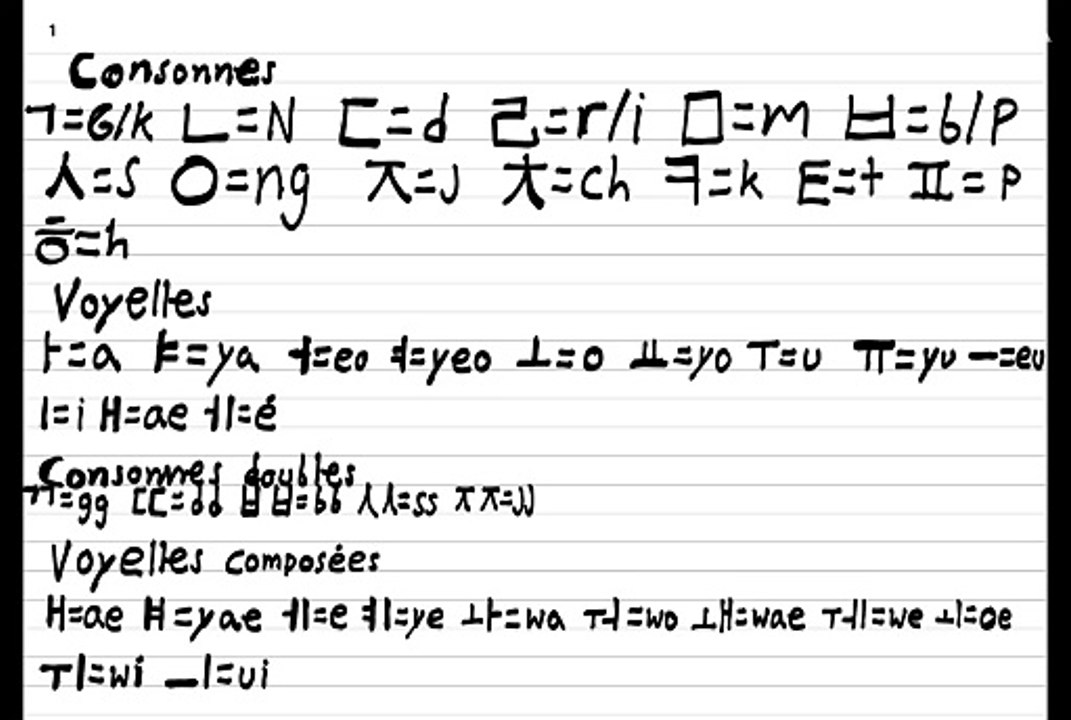 1
Consonnes
ㄱ=G/k ㄴ=N ㄷ=d ㄹ=r/i ㅁ=m ㅂ=b/p
ㅅ=s ㅇ=ng ㅈ=J ㅊ=ch ㅋ=k ㅌ=t ㅍ=p
ㅎ=h
Voyelles
ㅏ=a ㅑ=ya ㅓ=eo ㅕ=yeo ㅗ=o ㅛ=yo ㅜ=u ㅠ=yu ㅡ=eu
ㅣ=i ㅐ=ae ㅔ=é
Consonnes doubles
ㄲ=gg ㄸ=dd ㅃ=bb ㅆ=ss ㅉ=JJ
Voyelles composées
ㅐ=ae ㅒ=yae ㅔ=e ㅖ=ye ㅘ=wa ㅝ=wo ㅙ=wae ㅞ=we ㅚ=oe
ㅟ=wi ㅢ=ui